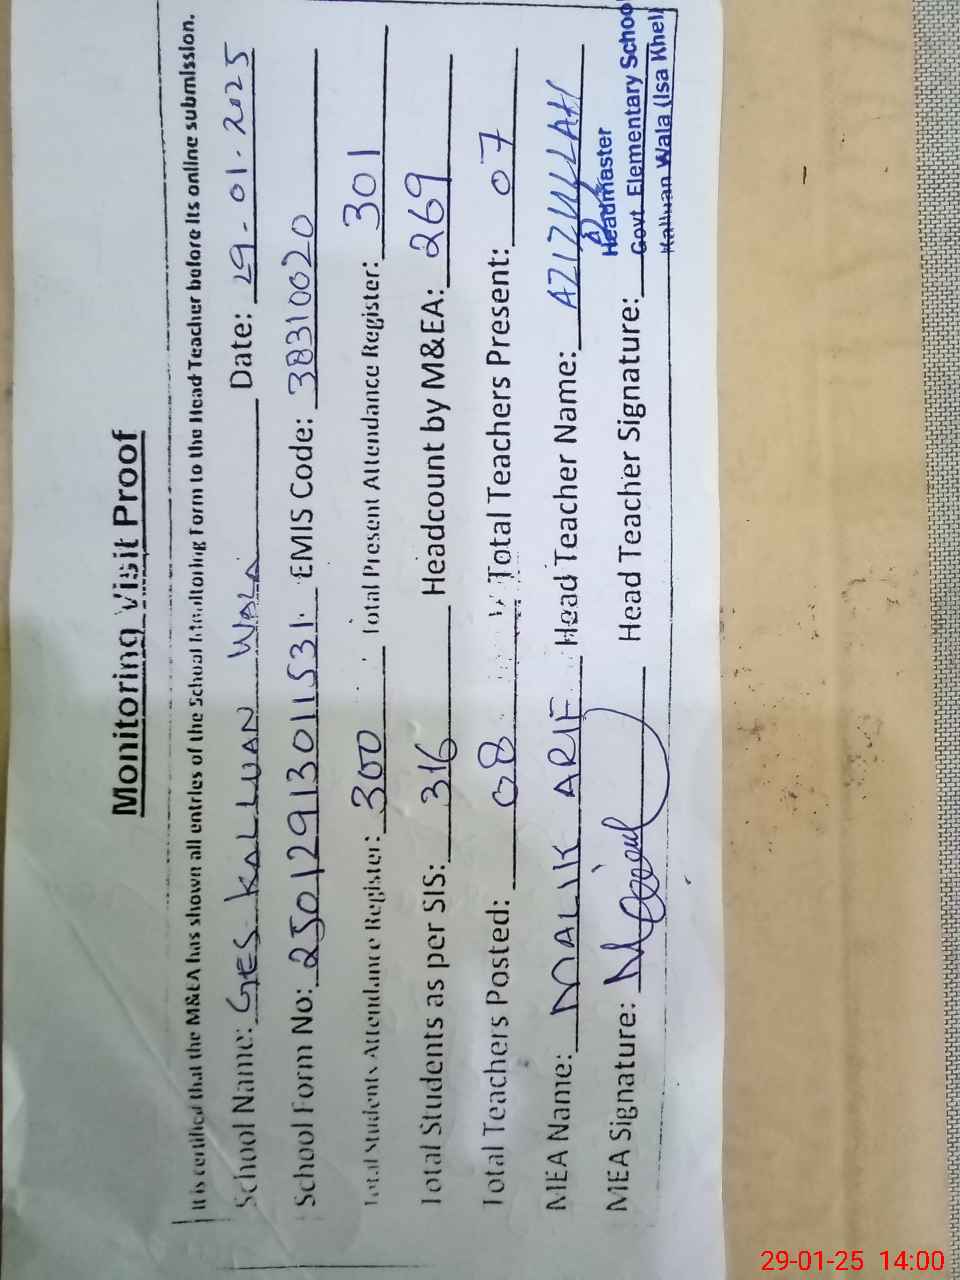 Monitoring Visit Proof
It is certified that the M&EA has shown all entries of the School Monitoring Form to the Head Teacher before its online submission.
School Name: GES KALLUAN WALA Date: 29-01-2025
School Form No: 25012913011531 EMIS Code: 38310020
Total Students Attendance Register: 300 Total Present Attendance Register: 301
Total Students as per SIS: 316 Headcount by M&EA: 269
Total Teachers Posted: 08 Total Teachers Present: 07
MEA Name: MALIK ARIF Head Teacher Name: AZIZULLAH
MEA Signature: Head Teacher Signature:
Headmaster
Govt. Elementary School
Kalluan Wala (Isa Khel)
29-01-25 14:00